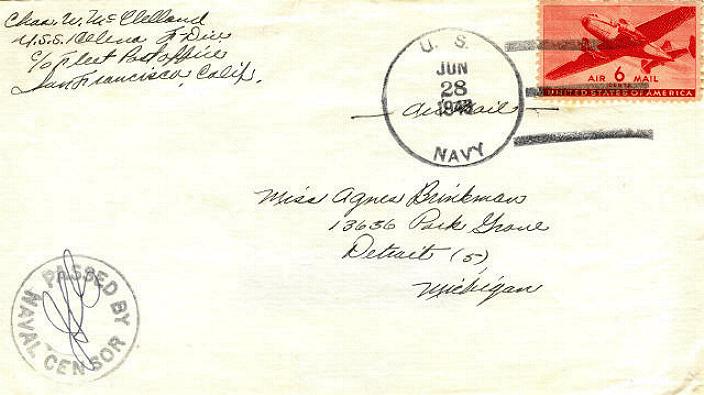 Chas. W. McClelland
U.S.S. Helena F Div
c/o Fleet Post office
San Francisco, Calif.
U. S.
JUN
28
1943
NAVY
AIR 6 MAIL
CENTS
UNITED STATES OF AMERICA
Air mail
Miss Agnes Brinkman
13636 Park Grove
Detroit (5)
Michigan
PASSED BY
NAVAL CENSOR